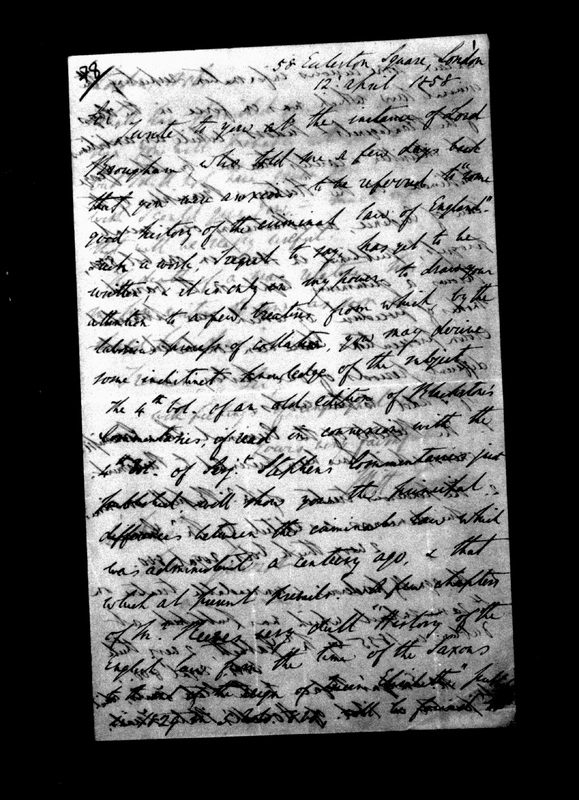 58 Euleston Square, London
12 April 1858
Sir
I write to you at the instance of Lord
Brougham, who told me a few days back
that you were anxious to be referred to "some
good History of the criminal law of England."
Such a work, I regret to say, has yet to be
written, & it is only in my power to draw your
attention to a few treatises from which by the
laborious process of collation, you may derive
some indistinct knowledge of the subject.
The 4th vol. of an old edition of Blackstone's
Commentaries, if read in connexion with the
4th vol. of Serjt Stephen's Commentaries just
published will show you the principal
differences between the criminal law which
was administered a century ago, & that
which at present prevails. A few chapters
of Mr Reeves very dull "History of the
English law from the time of the Saxons
to the end of the reign of Queen Elizabeth"
will be found